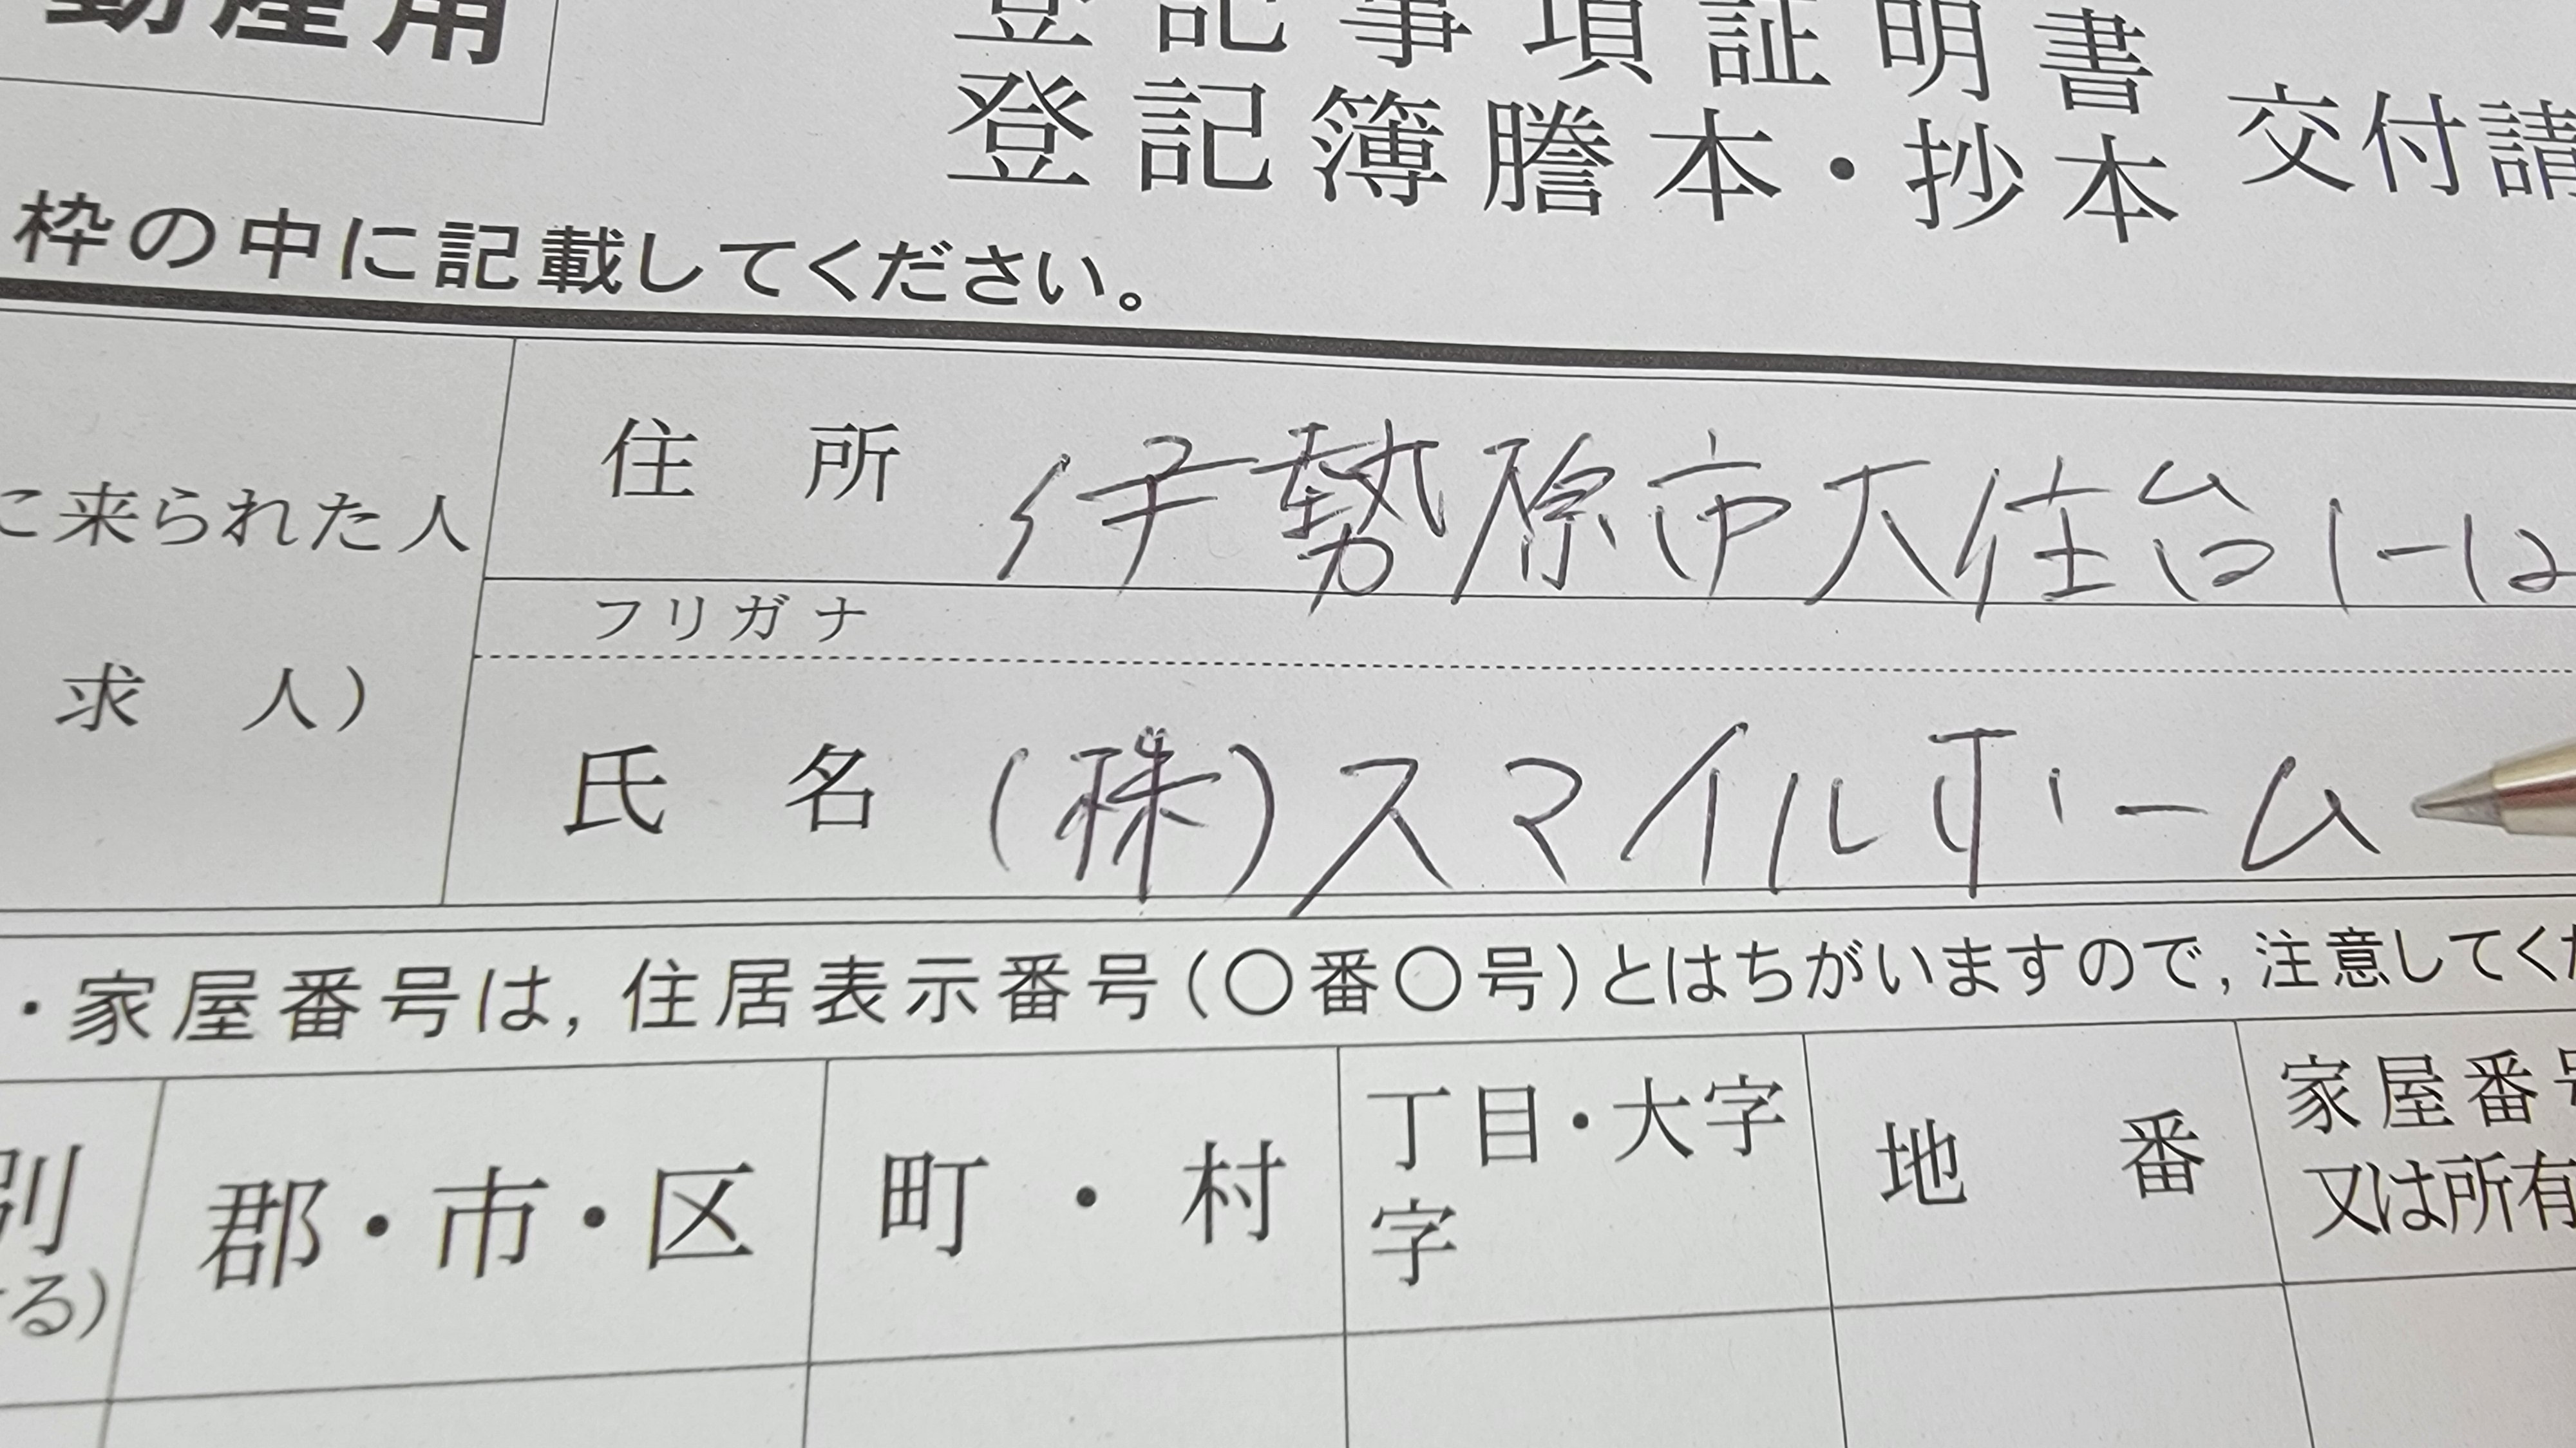 動産用
登記事項証明書
登記簿謄本・抄本 交付請
枠の中に記載してください。
に来られた人
求 人）
住 所 伊勢原市大住台1-12
フリガナ
氏 名 (株)スマイルホーム
・家屋番号は，住居表示番号（〇番〇号）とはちがいますので，注意してくだ
別
する）
郡・市・区
町・村
丁目・大字
字
地 番
家屋番号
又は所有